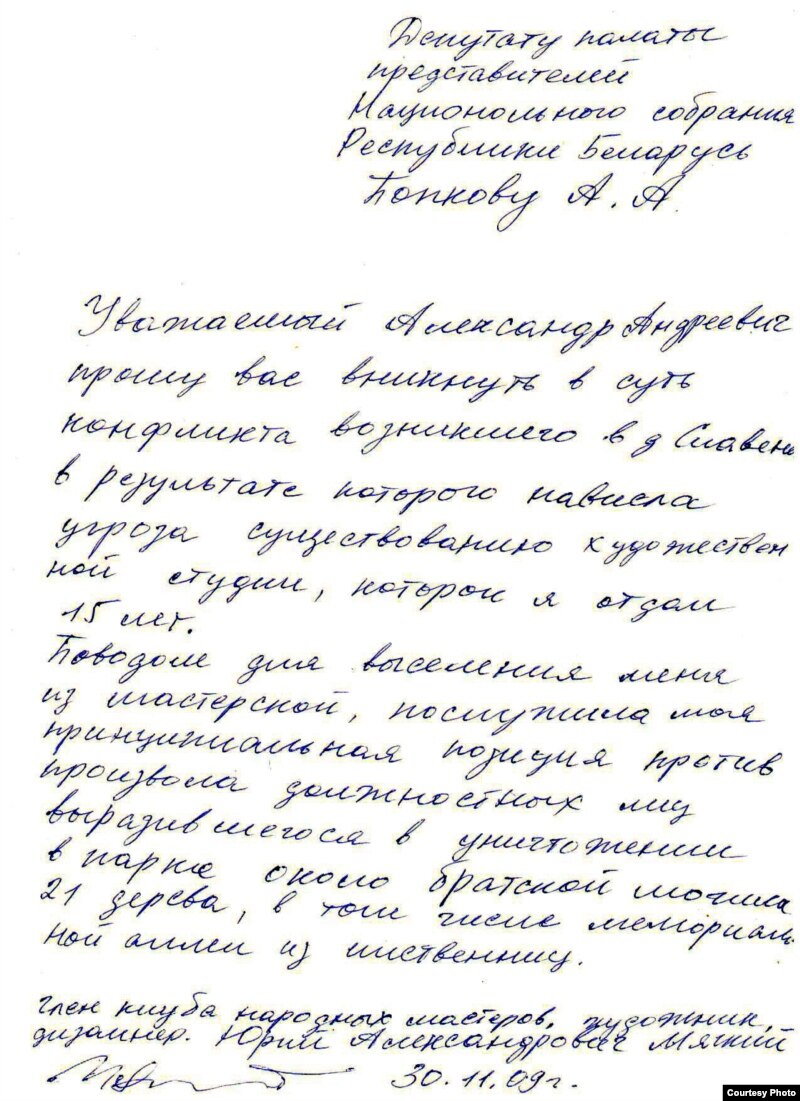 Депутату палаты
представителей
Национольного собрания
Республики Беларусь
Попкову А. А.
Уважаемый Александр Андреевич
прошу вас вникнуть в суть
конфликта возникшего в д Славени
в результате которого нависла
угроза существованию художествен
ной студии, которой я отдал
15 лет.
Поводом для выселения меня
из мастерской, послужила моя
принципиальная позиция против
произвола должностных лиц
выразившегося в уничтожении
в парке около братской могилы
21 дерева, в том числе мемориаль
ной аллеи из лиственниц.
член клуба народных мастеров, художник,
дизайнер. Юрий Александрович Мягкий
30.11.09г.
Courtesy Photo